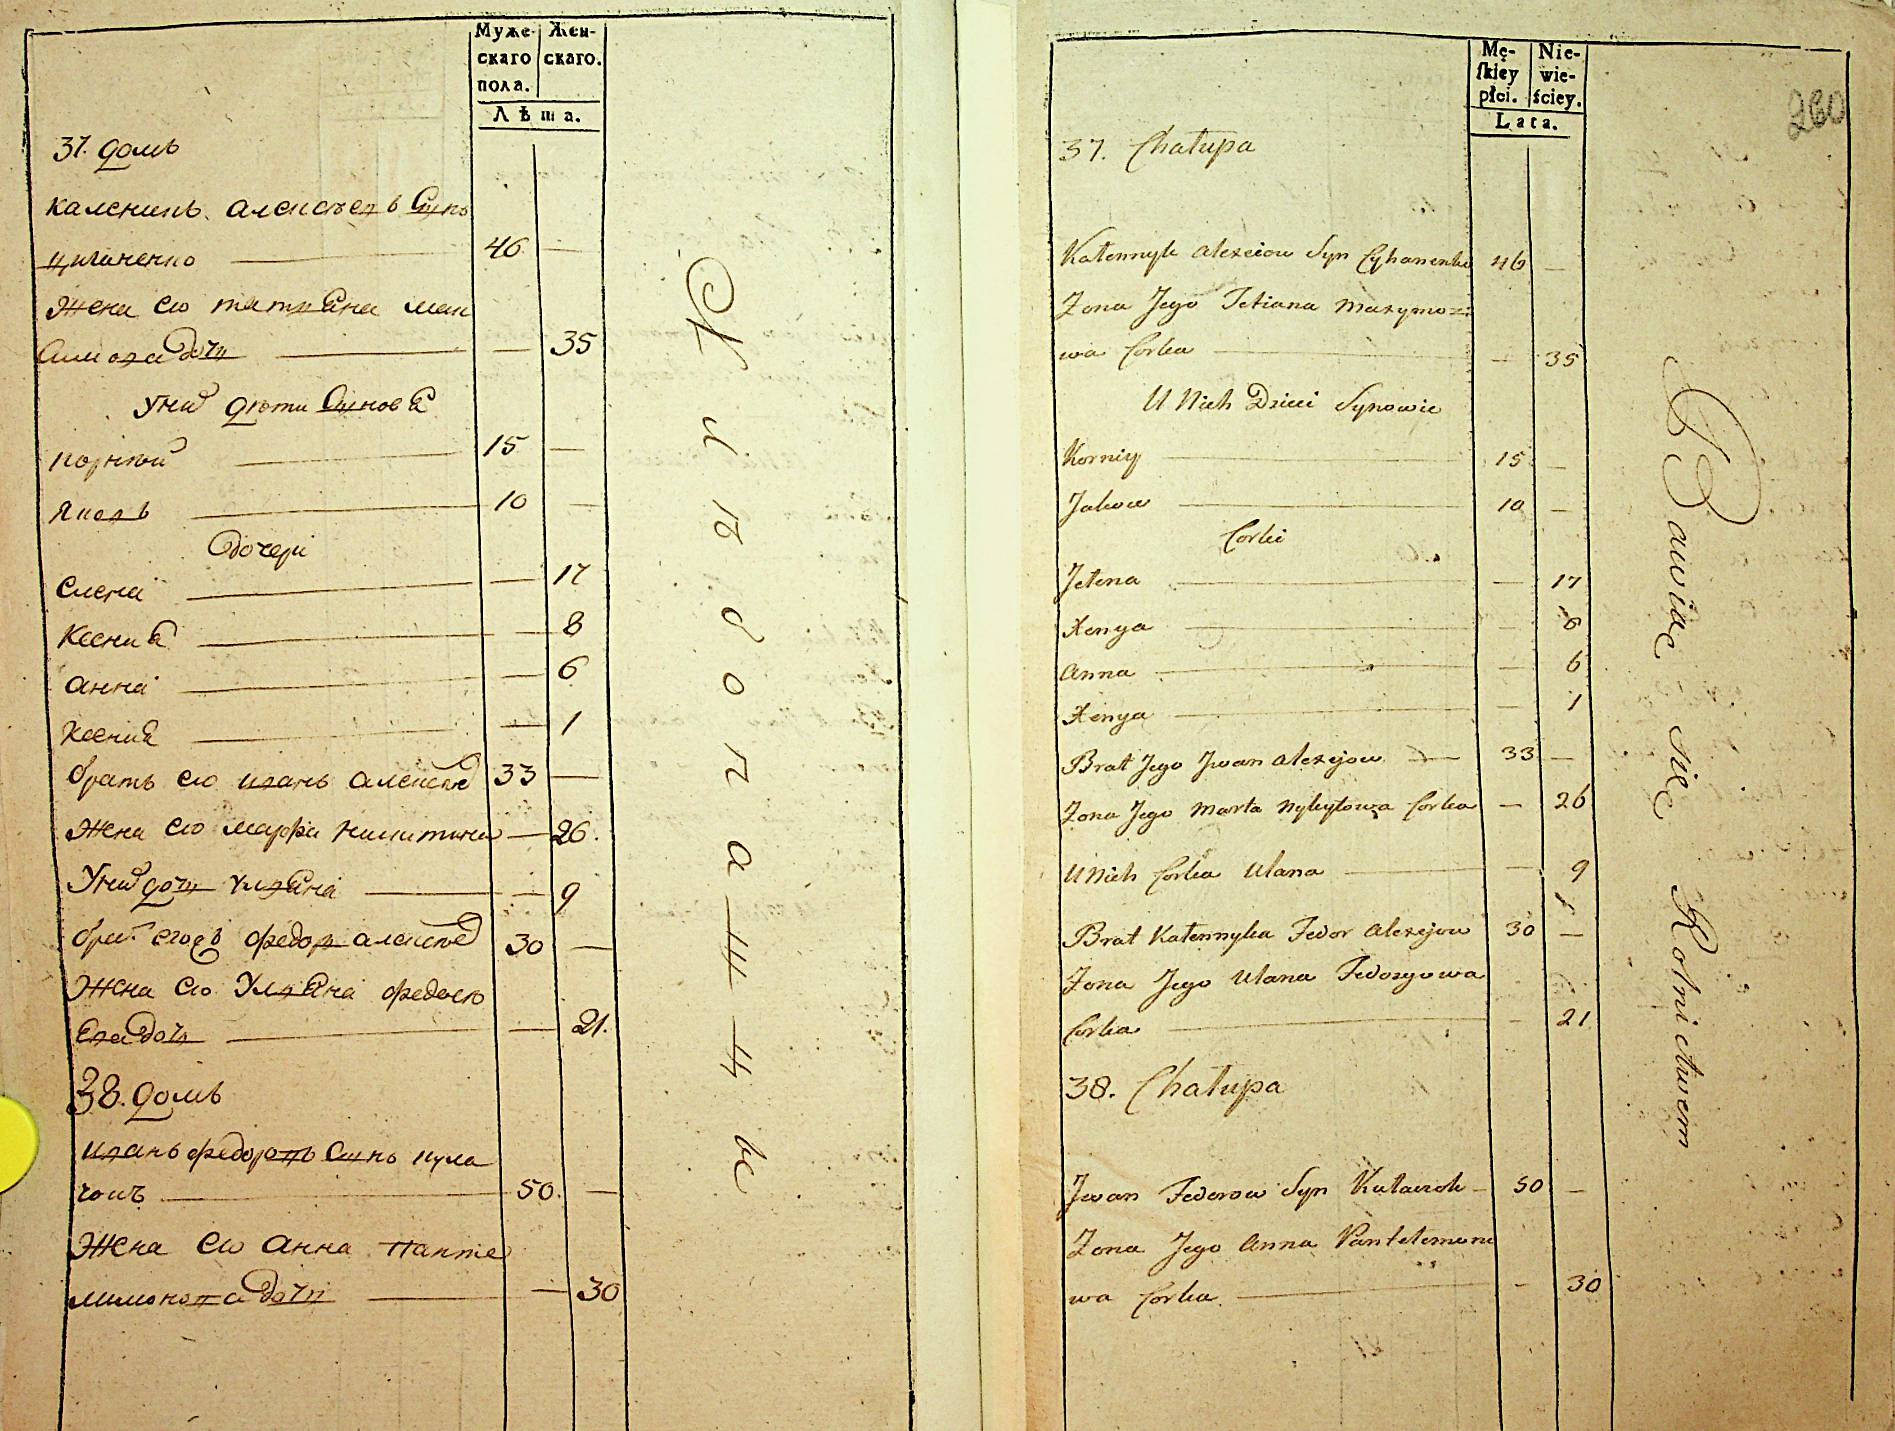 Муже-
скаго
пола.
Жен-
скаго.
Лѣта.
37. домъ
каленикъ алексѣевъ сынъ
цыганенко — 46 —
жена его татъяна мак
симова дочь — 35
у них дѣти сыновя
корнѣй 15 —
яковъ 10 —
дочери
елена — 17
ксения — 8
анна — 6
ксения — 1
братъ его иванъ алексѣев 33 —
жена его марфа никитина — 26.
у них дочь улияна — 9
брат федор алексѣев 30 —
жена его улияна федосе
ева дочь — 21.
38. домъ
иванъ федоровъ сынъ кула
чокъ 50. —
жена его анна панте
лимонова дочь — 30
Хлѣбопашцы
Mę-
skiey
płci.
Nie-
wie-
ściey.
Lata.
260
37. Chałupa
Kałennyk Alexeiow Syn Cyhanenko 46 —
Zona Jego Tetiana Maxymo=
wa Corka — 35
U Nich Dzieci Synowie
Korniy 15 —
Jakow 10 —
Corki
Jełena — 17
Xenya — 8
Anna — 6
Xenya — 1
Brat Jego Jwan Alexejow 33 —
Zona Jego Marta Nykytowa Corka — 26
U Nich Corka Ulana — 9
Brat Kałennyka Fedor Alexejow 30 —
Zona Jego Ulana Fedosyowa
Corka — 21
38. Chałupa
Jwan Fedorow Syn Kułaczok 50 —
Zona Jego Anna Pantełemono
wa Corka — 30
Bawiąc się Rolnictwem